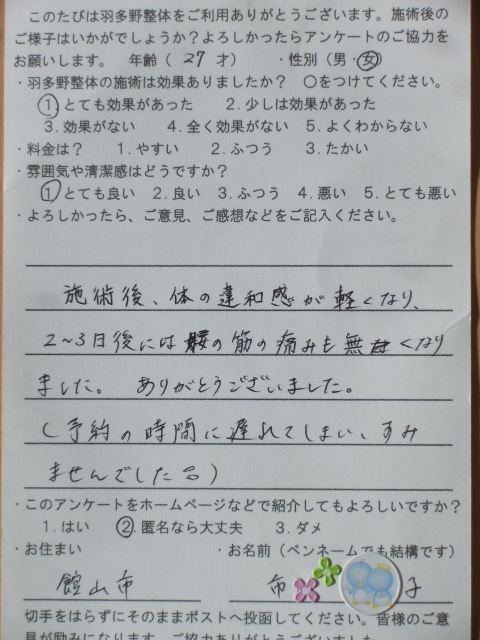 このたびは羽多野整体をご利用ありがとうございます。施術後の
ご様子はいかがでしょうか？よろしかったらアンケートのご協力を
お願いします。 年齢（ 27 才） ・性別（男・女）
・羽多野整体の施術は効果ありましたか？ 〇をつけてください。
1 とても効果があった 2. 少しは効果があった
3. 効果がない 4. 全く効果がない 5. よくわからない
・料金は？ 1. やすい 2. ふつう 3. たかい
・雰囲気や清潔感はどうですか？
1 とても良い 2. 良い 3. ふつう 4. 悪い 5. とても悪い
・よろしかったら、ご意見、ご感想などをご記入ください。
施術後、体の違和感が軽くなり、
2〜3日後には腰の筋の痛みも無くなり
ました。 ありがとうございました。
（予約の時間に遅れてしまい、すみ
ませんでした）
・このアンケートをホームページなどで紹介してもよろしいですか？
1. はい 2. 匿名なら大丈夫 3. ダメ
・お住まい ・お名前（ペンネームでも結構です）
館山市 市 子
切手をはらずにそのままポストへ投函してください。皆様のご意
見が励みになります。ご協力ありがとうございました